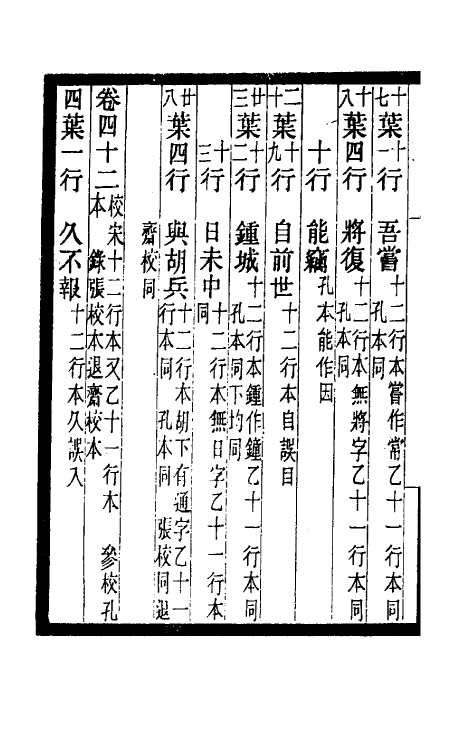 十七葉十一行　吾嘗十二行本嘗作常乙十一行本同孔本同
十八葉四行　將復十二行本無將字乙十一行本同孔本同
十行　能竊孔本能作因
二十葉十九行　自前世十二行本自誤目
廿三葉十二行　鍾城十二行本鍾作鐘乙十一行本同孔本同下均同
十三行　日未中十二行本無日字乙十一行本同
廿八葉四行　與胡兵十二行本胡下有通字乙十一行本同孔本同張校同退
齋校同
卷四十二校宋十二行本又乙十一行本　參校孔本錄張校本退齋校本
四葉一行　久不報十二行本久誤入